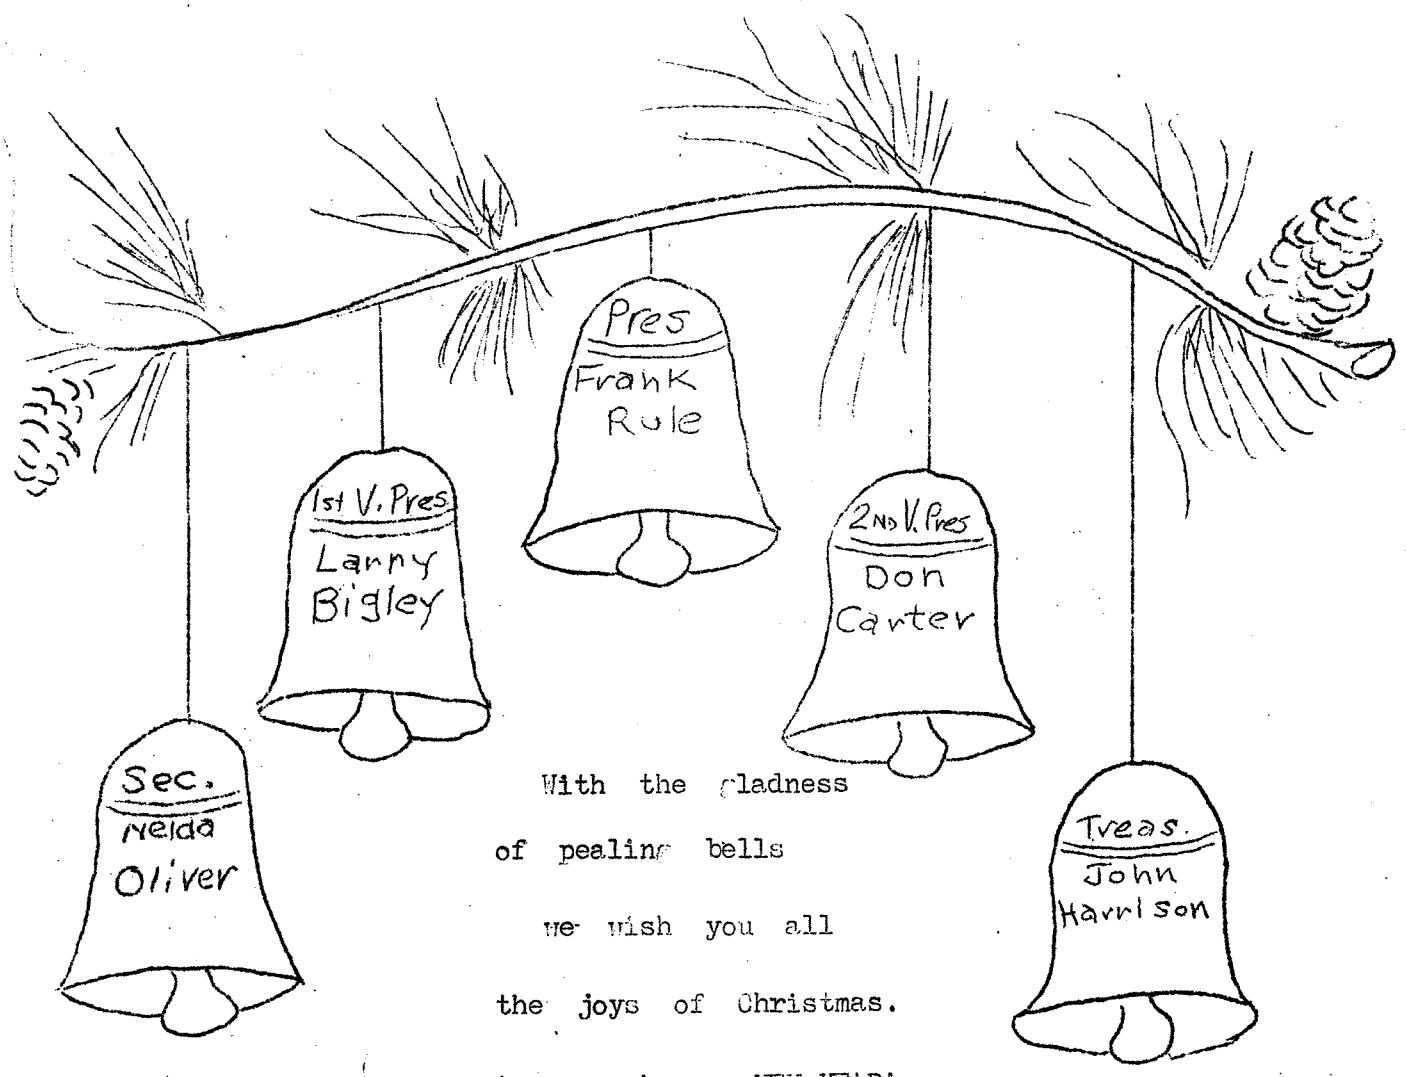 Pres
Frank
Rule
1st V. Pres
Lanny
Bigley
2ND V. Pres
Don
Carter
Sec.
Nelda
Oliver
Treas.
John
Harrison
With the gladness
of pealing bells
we wish you all
the joys of Christmas.